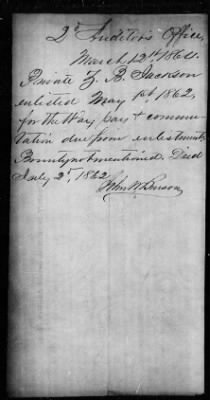 2d Auditor's Office,
March 12th, 1864.
Private Z. B. Jackson
enlisted May 1st, 1862,
for the War, pay & commu-
tation due from enlistment,
Bounty not mentioned. Died
July 2d, 1862
John W. Benson